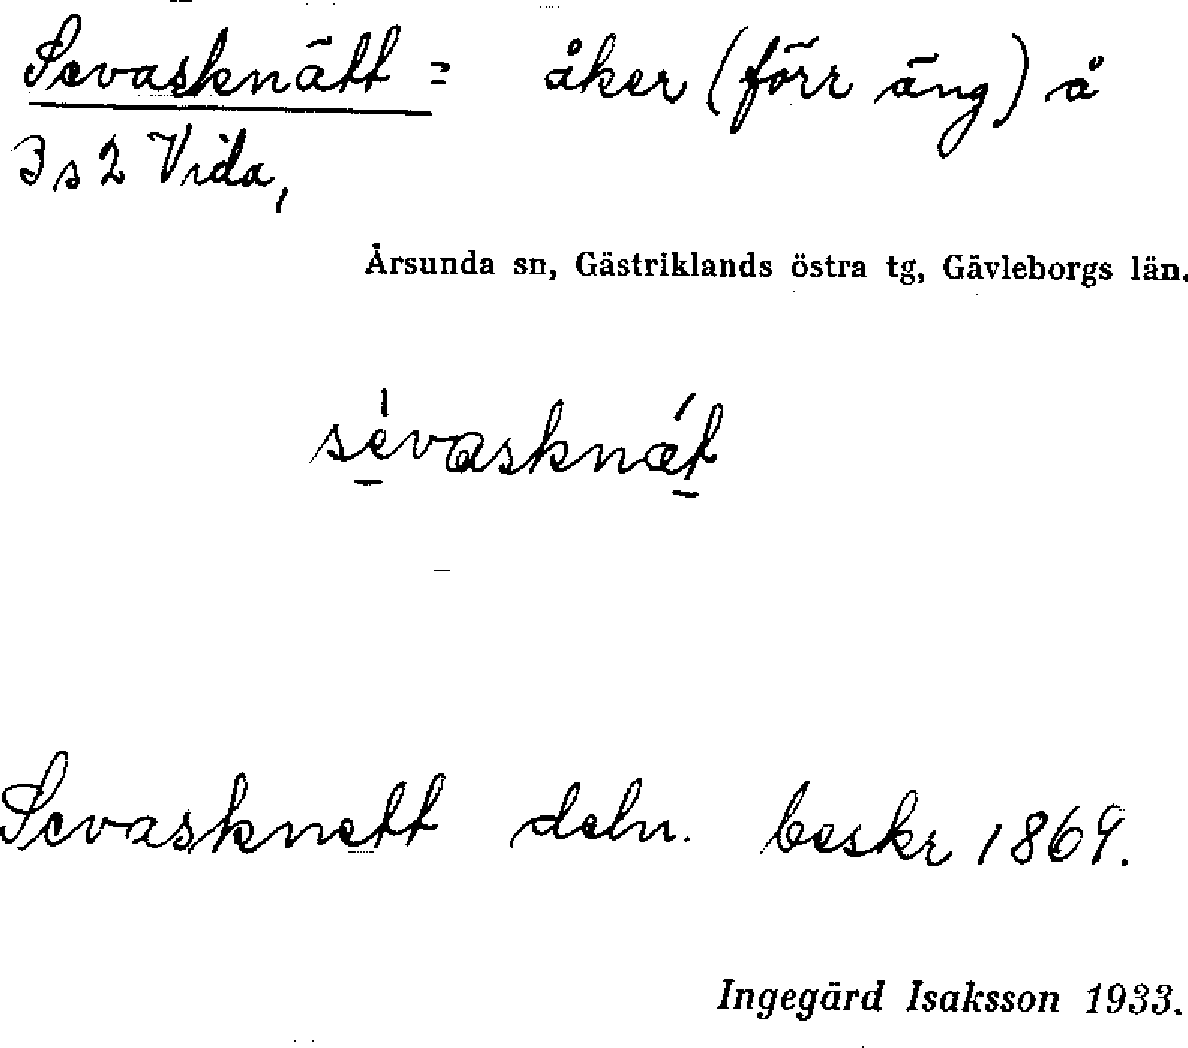 Sevasknätt = åker (förr äng) å
3 s 2 Vida,
Årsunda sn, Gästriklands östra tg, Gävleborgs län.
sèvasknǽt
Sevasknett deln. beskr 1869.
Ingegärd Isaksson 1933.